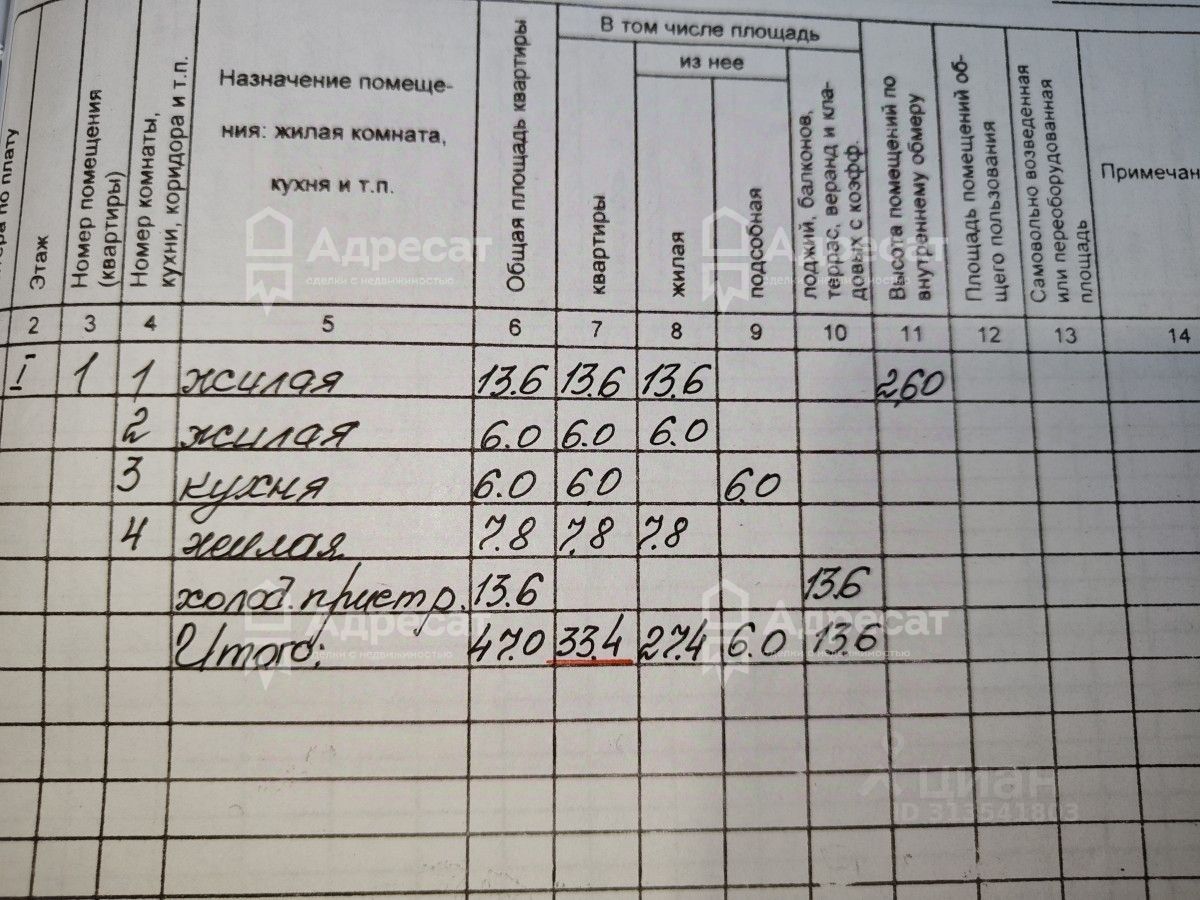 В том числе площадь
из нее
по плату
Этаж
Номер помещения
(квартиры)
Номер комнаты,
кухни, коридора и т.п.
Назначение помеще-
ния: жилая комната,
кухня и т.п.
Общая площадь квартиры
квартиры
жилая
подсобная
лоджий, балконов,
террас, веранд и кла-
довых с коэфф.
Высота помещений по
внутреннему обмеру
Площадь помещений об-
щего пользования
Самовольно возведенная
или переоборудованная
площадь
Примечан
Адресат
сделки с недвижимостью
Адресат
сделки с недвижимостью
2 3 4 5 6 7 8 9 10 11 12 13 14
I 1 1 жилая 13.6 13.6 13.6 2,60
2 жилая 6.0 6.0 6.0
3 кухня 6.0 60 6.0
4 жилая 7.8 7.8 7.8
холод. пристр. 13.6 13.6
Итого: 47.0 33.4 27.4 6.0 13.6
Адресат
сделки с недвижимостью
Адресат
сделки с недвижимостью
циан
ID 313541803